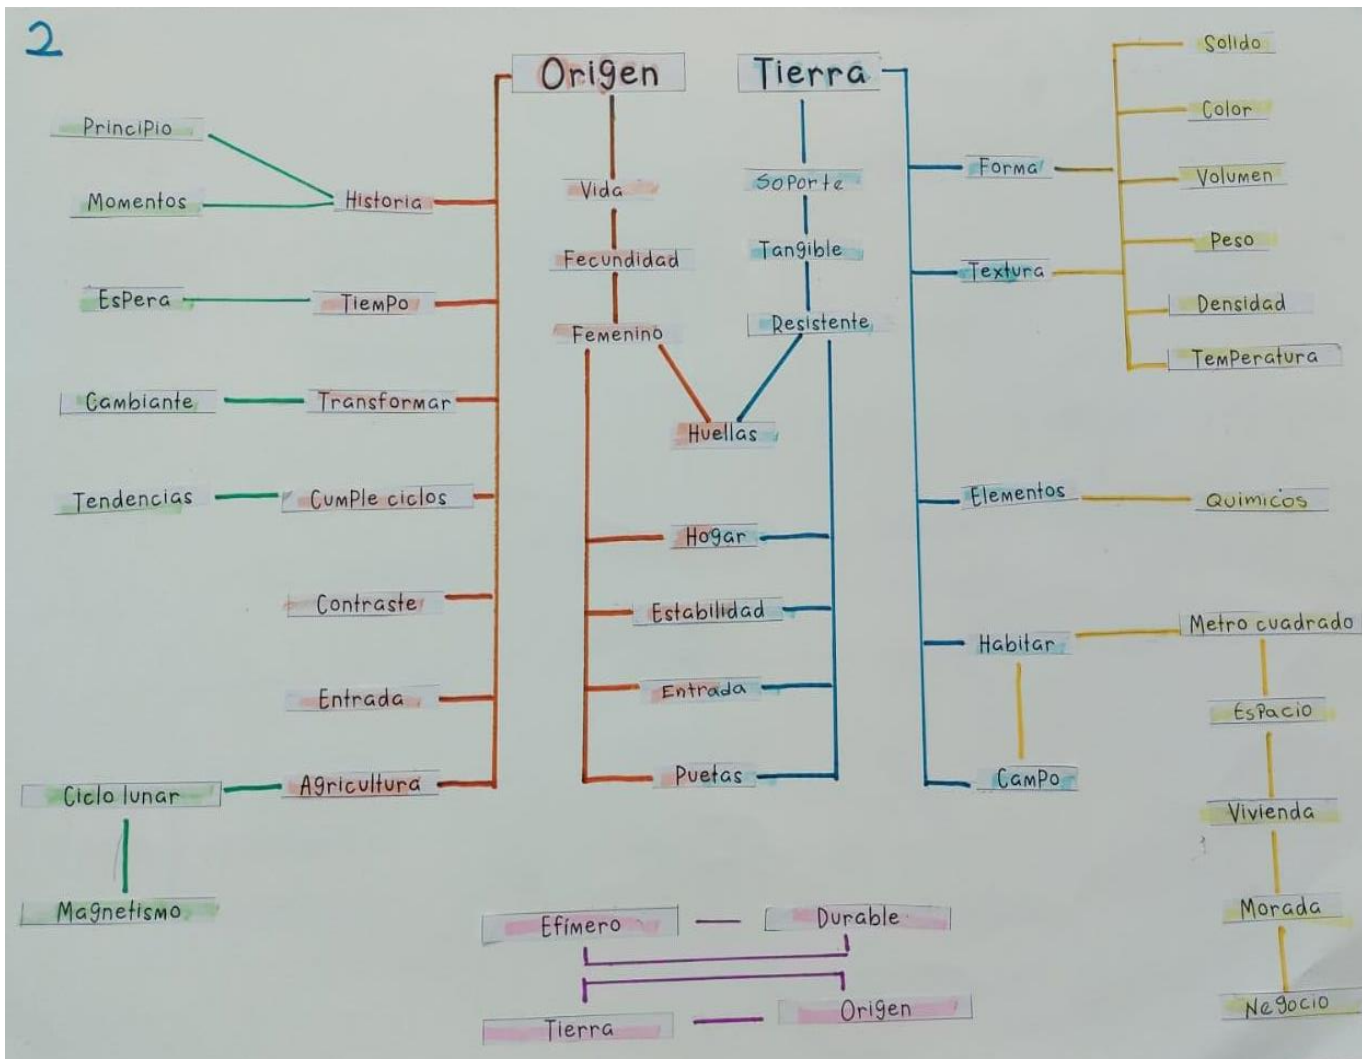 2
Origen
Tierra
Principio
Momentos
Historia
Espera
Tiempo
Cambiante
Transformar
Tendencias
Cumple ciclos
Contraste
Entrada
Ciclo lunar
Agricultura
Magnetismo
Vida
Fecundidad
Femenino
Soporte
Tangible
Resistente
Huellas
Hogar
Estabilidad
Entrada
Puetas
Forma
Textura
Solido
Color
Volumen
Peso
Densidad
Temperatura
Elementos
Quimicos
Habitar
Campo
Metro cuadrado
Espacio
Vivienda
Morada
Negocio
Efímero
Durable
Tierra
Origen